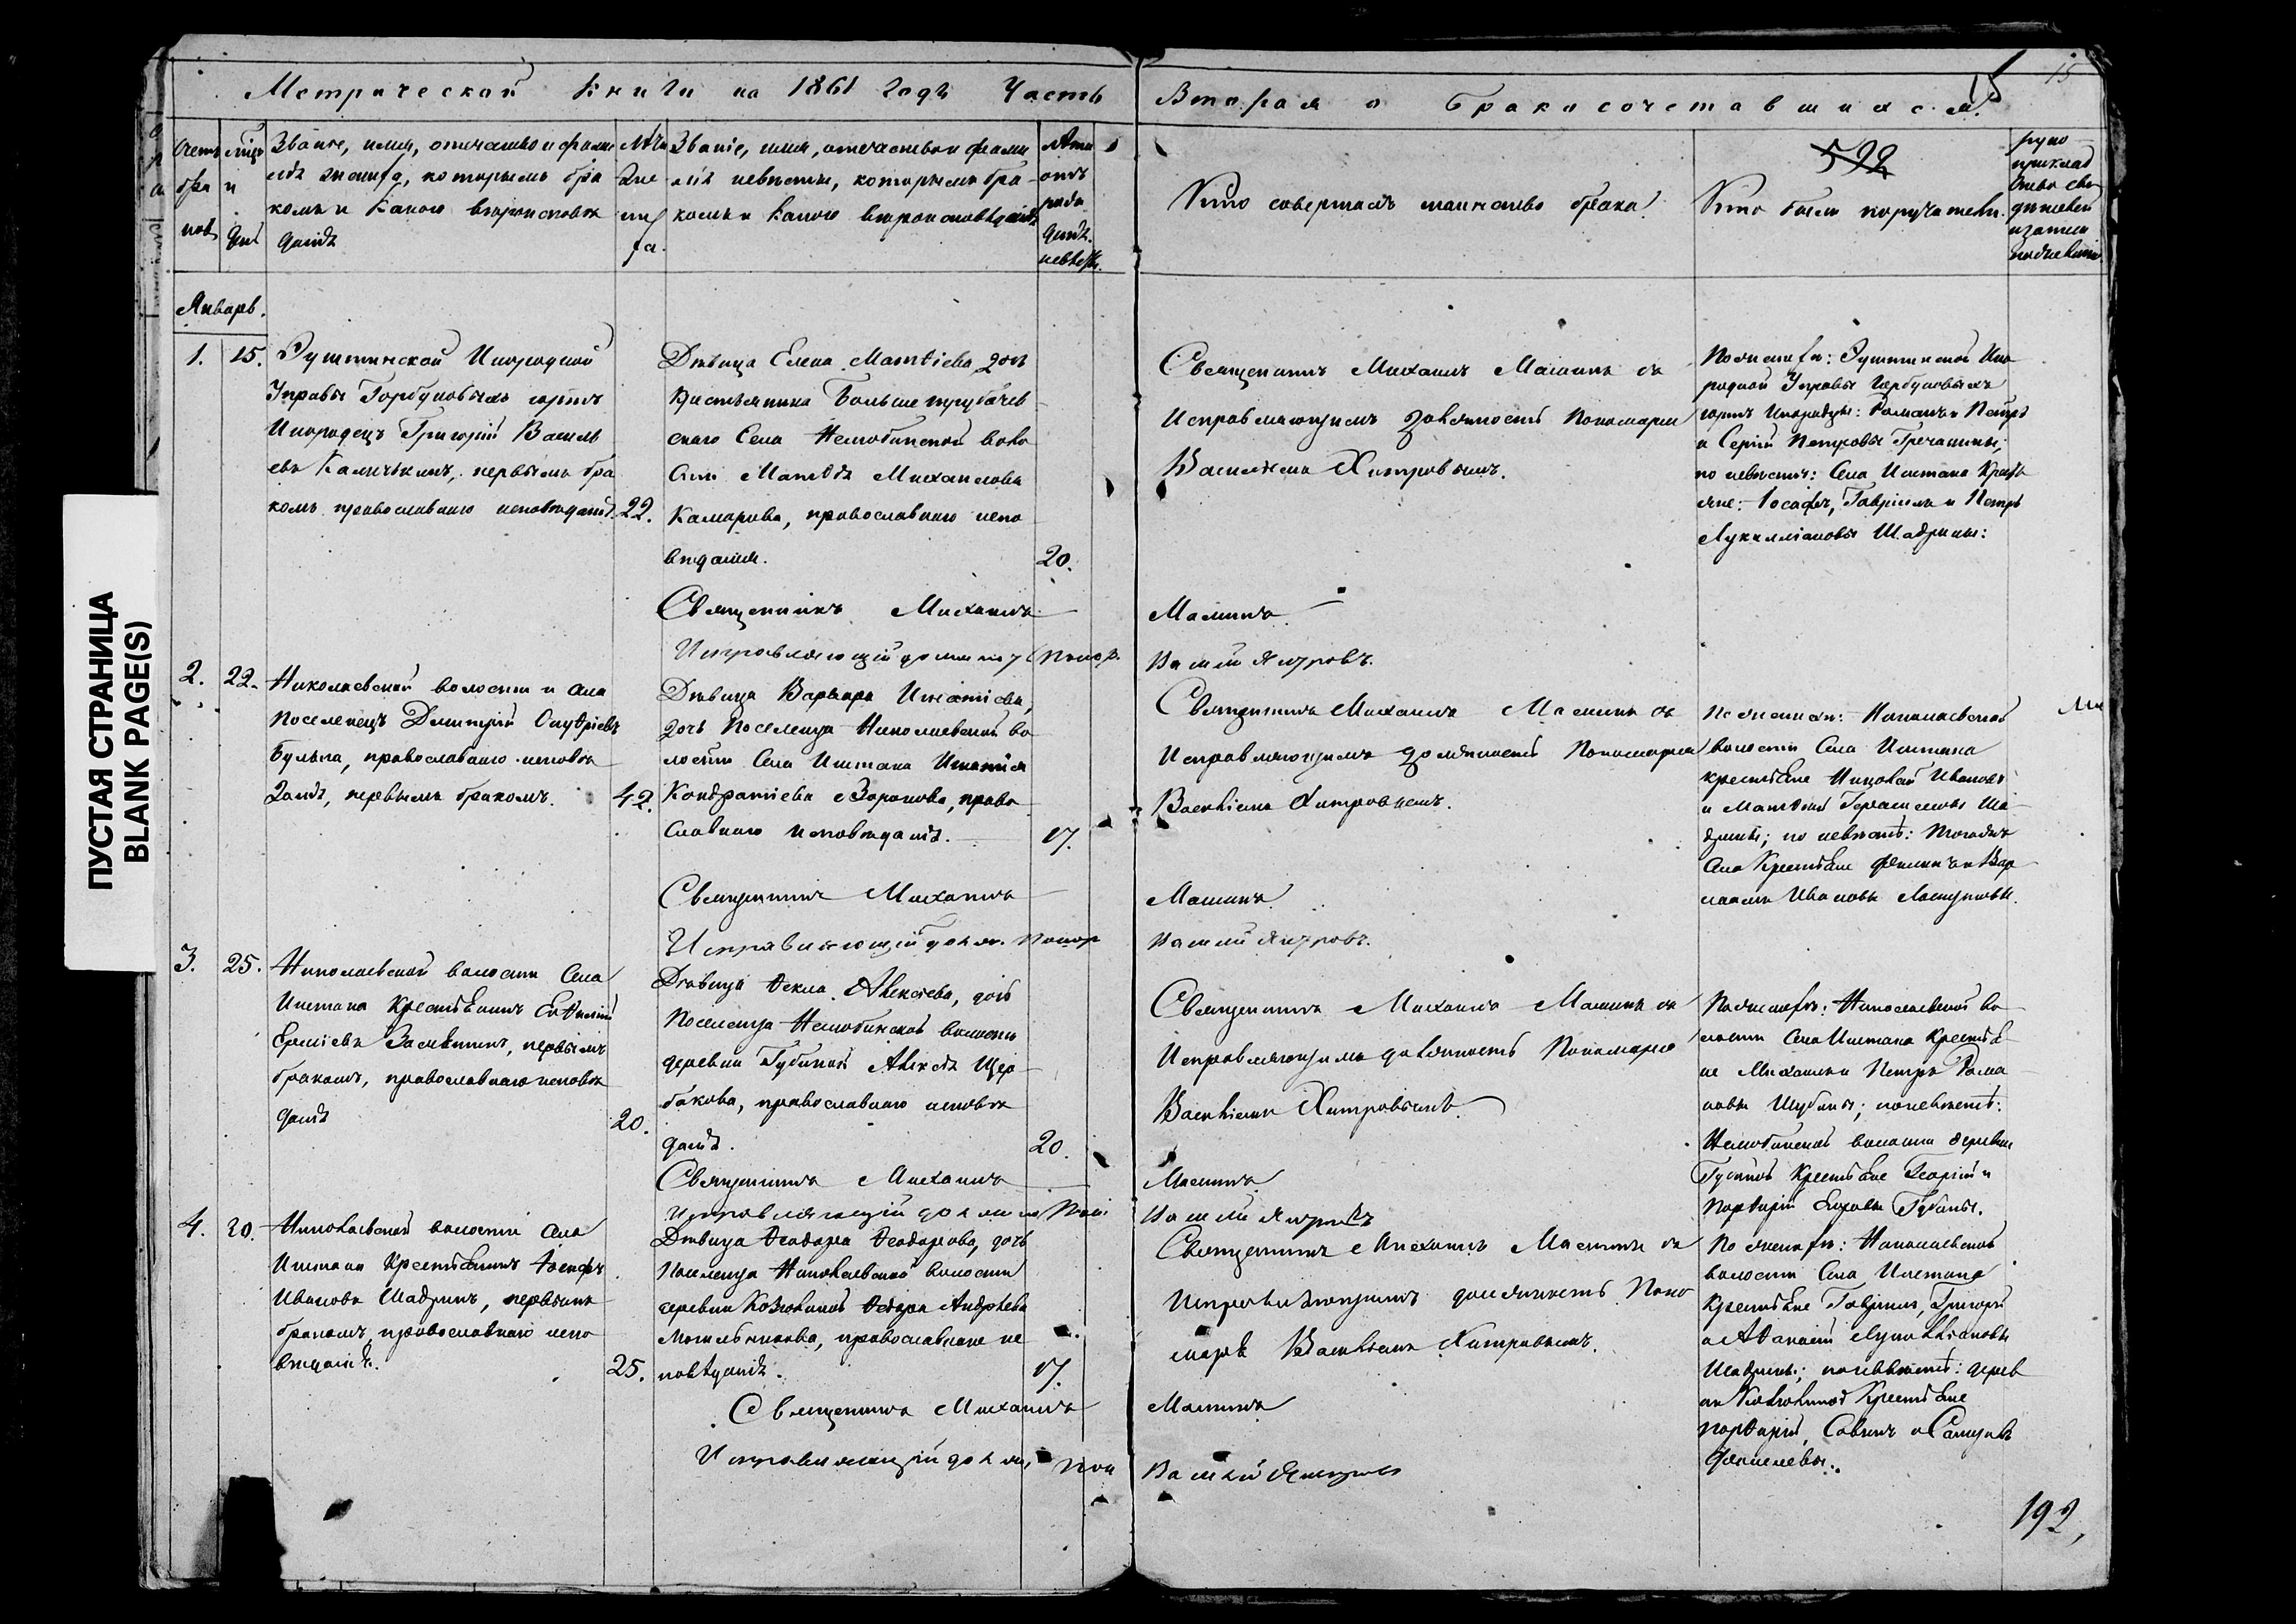 Метрической Книги на 1861 годъ Часть Вторая о Бракосочетавшихся.
15
15
Счетъ бра ковъ
Мѣць и дни
Званіе, имя, отчество и фами
лія жениха, которымъ бра
комъ и какого вѣроисповѣ
данія
Лѣта
жени
ха.
Званіе, имя, отчество и фами
лія невѣсты, которымъ бра
комъ и какого вѣроисповѣданія
Лѣта
невѣсты.
Кто совершалъ таинство брака.
592
Кто были поручители.
руко
приклад
ство
Январь.
1.
15.
Инородной
Управы Горбуновыхъ юртъ
Инородецъ Григорій Василь
евъ первымъ бра
комъ православнаго исповѣданія.
22.
Дѣвица Елена Матѳіева, дочь
Крестьянина
скаго Села Нелюбинской воло
сти Матѳѣя Михаилова
Камарова, православнаго испо
вѣданія.
20.
Священникъ Михаилъ Малинъ съ
Исправляющимъ должность Пономаря
Василіемъ Хитровымъ.
По женихѣ: Ино
родной Управы Горбуновыхъ
юртъ Инородцы: Романъ и Петръ
и Сергій Петровы Гречанины;
по невѣстѣ: Села Иштана Кресть
яне: Іосафъ, Гавріилъ и Петръ
Лукилліановы Шадрины:
Священникъ Михаилъ Малинъ
Исправляющій должность Поном. Василій Хитровъ.
2.
22.
Николаевской волости и села
Поселенецъ Димитрій Онуфріевъ
Булыга, православнаго исповѣ
данія, первымъ бракомъ.
42.
Дѣвица Варвара Игнатіева,
дочь Поселенца Николаевской во
лости Села Иштана Игнатія
Кондратіева Воронова, право
славнаго исповѣданія.
17.
Священникъ Михаилъ Малинъ съ
Исправляющимъ должность Пономаря
Василіемъ Хитровымъ.
По женихѣ: Николаевской
волости Села Иштана
крестьяне Николай Ивановъ
и Матѳей Герасимовы Ша
дрины; по невѣстѣ: Тогожъ
Села Крестьяне Филипъ и Вар
лаамъ Ивановы
Священникъ Михаилъ Малинъ
Исправляющій долж. Поном Василій Хитровъ.
3.
25.
Николаевской волости Села
Иштана Крестьянинъ Евѳимій
первымъ
бракомъ, православнаго исповѣ
данія
20.
Дѣвица Ѳекла Алексѣева, дочь
Поселенца Нелюбинской волости
деревни Губиной Алексѣя Щер
бакова, православнаго исповѣ
данія.
20.
Священникъ Михаилъ Малинъ съ
Исправляющимъ должность Пономаря
Василіемъ Хитровымъ.
По женихѣ: Николаевской во
лости Села Иштана Крестья
не Михаилъ и Петръ Рома
новы Шубины; по невѣстѣ:
Нелюбинской волости деревни
Губиной Крестьяне Георгій и
Порфирій Губины.
Священникъ Михаилъ Малинъ
Исправляющій должность Василій Хитровъ
4.
30.
Николаевской волости Села
Иштана Крестьянинъ Іосифъ
Ивановъ Шадринъ, первымъ
бракомъ, православнаго испо
вѣданія.
25.
Дѣвица Ѳеодора Ѳеодорова, дочь
Поселенца Николаевской волости
деревни Ѳедора Андреева
Мыльникова, православнаго ис
повѣданія.
17.
Священникъ Михаилъ Малинъ съ
Исправляющимъ должность Поно
маря Василіемъ Хитровымъ.
По женихѣ: Николаевской
волости Села Иштана
Крестьяне Гавріилъ, Григорій
и Аѳанасій Лукилліановы
Шадрины; по невѣстѣ: дерев
ни Крестьяне
Порфирій, Савинъ и Самуилъ
Священникъ Михаилъ Малинъ
Исправляющій долж. Пон Василій
192,
ПУСТАЯ СТРАНИЦА
BLANK PAGE(S)